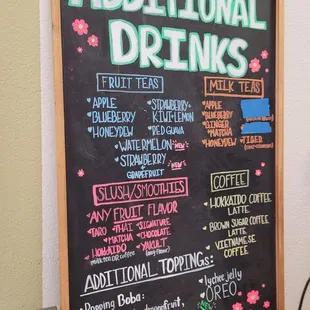 ADDITIONAL
DRINKS
FRUIT TEAS
APPLE
BLUEBERRY
HONEYDEW
STRAWBERRY-
KIWI-LEMON
RED GUAVA
WATERMELON NEW
STRAWBERRY NEW
GRAPEFRUIT
MILK TEAS
APPLE
BLUEBERRY
GINGER
MATCHA
HONEYDEW
TIGER
SLUSH/SMOOTHIES
ANY FRUIT FLAVOR
TARO
MATCHA
HOKKAIDO
THAI
SIGNATURE
CHOCOLATE
YAKULT
MILK TEA OR COFFEE
COFFEE
HOKKAIDO COFFEE
LATTE
BROWN SUGAR COFFEE
LATTE
VIETNAMESE
COFFEE
ADDITIONAL TOPPINGS:
Popping Boba:
dragonfruit,
lychee jelly
OREO